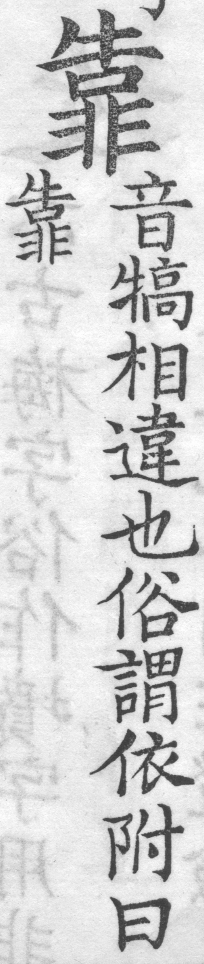 靠
音犒相違也俗謂依附曰
靠